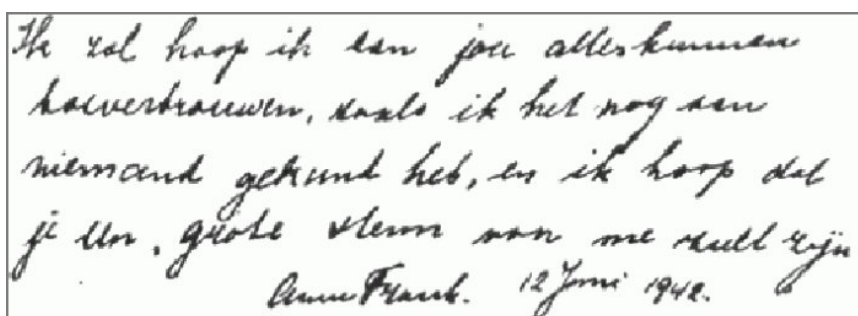 Ik zal hoop ik aan jou alles kunnen
toevertrouwen, zoals ik het nog aan
niemand gekund heb, en ik hoop dat
je een grote steun van me zult zijn
Anne Frank. 12 Juni 1942.